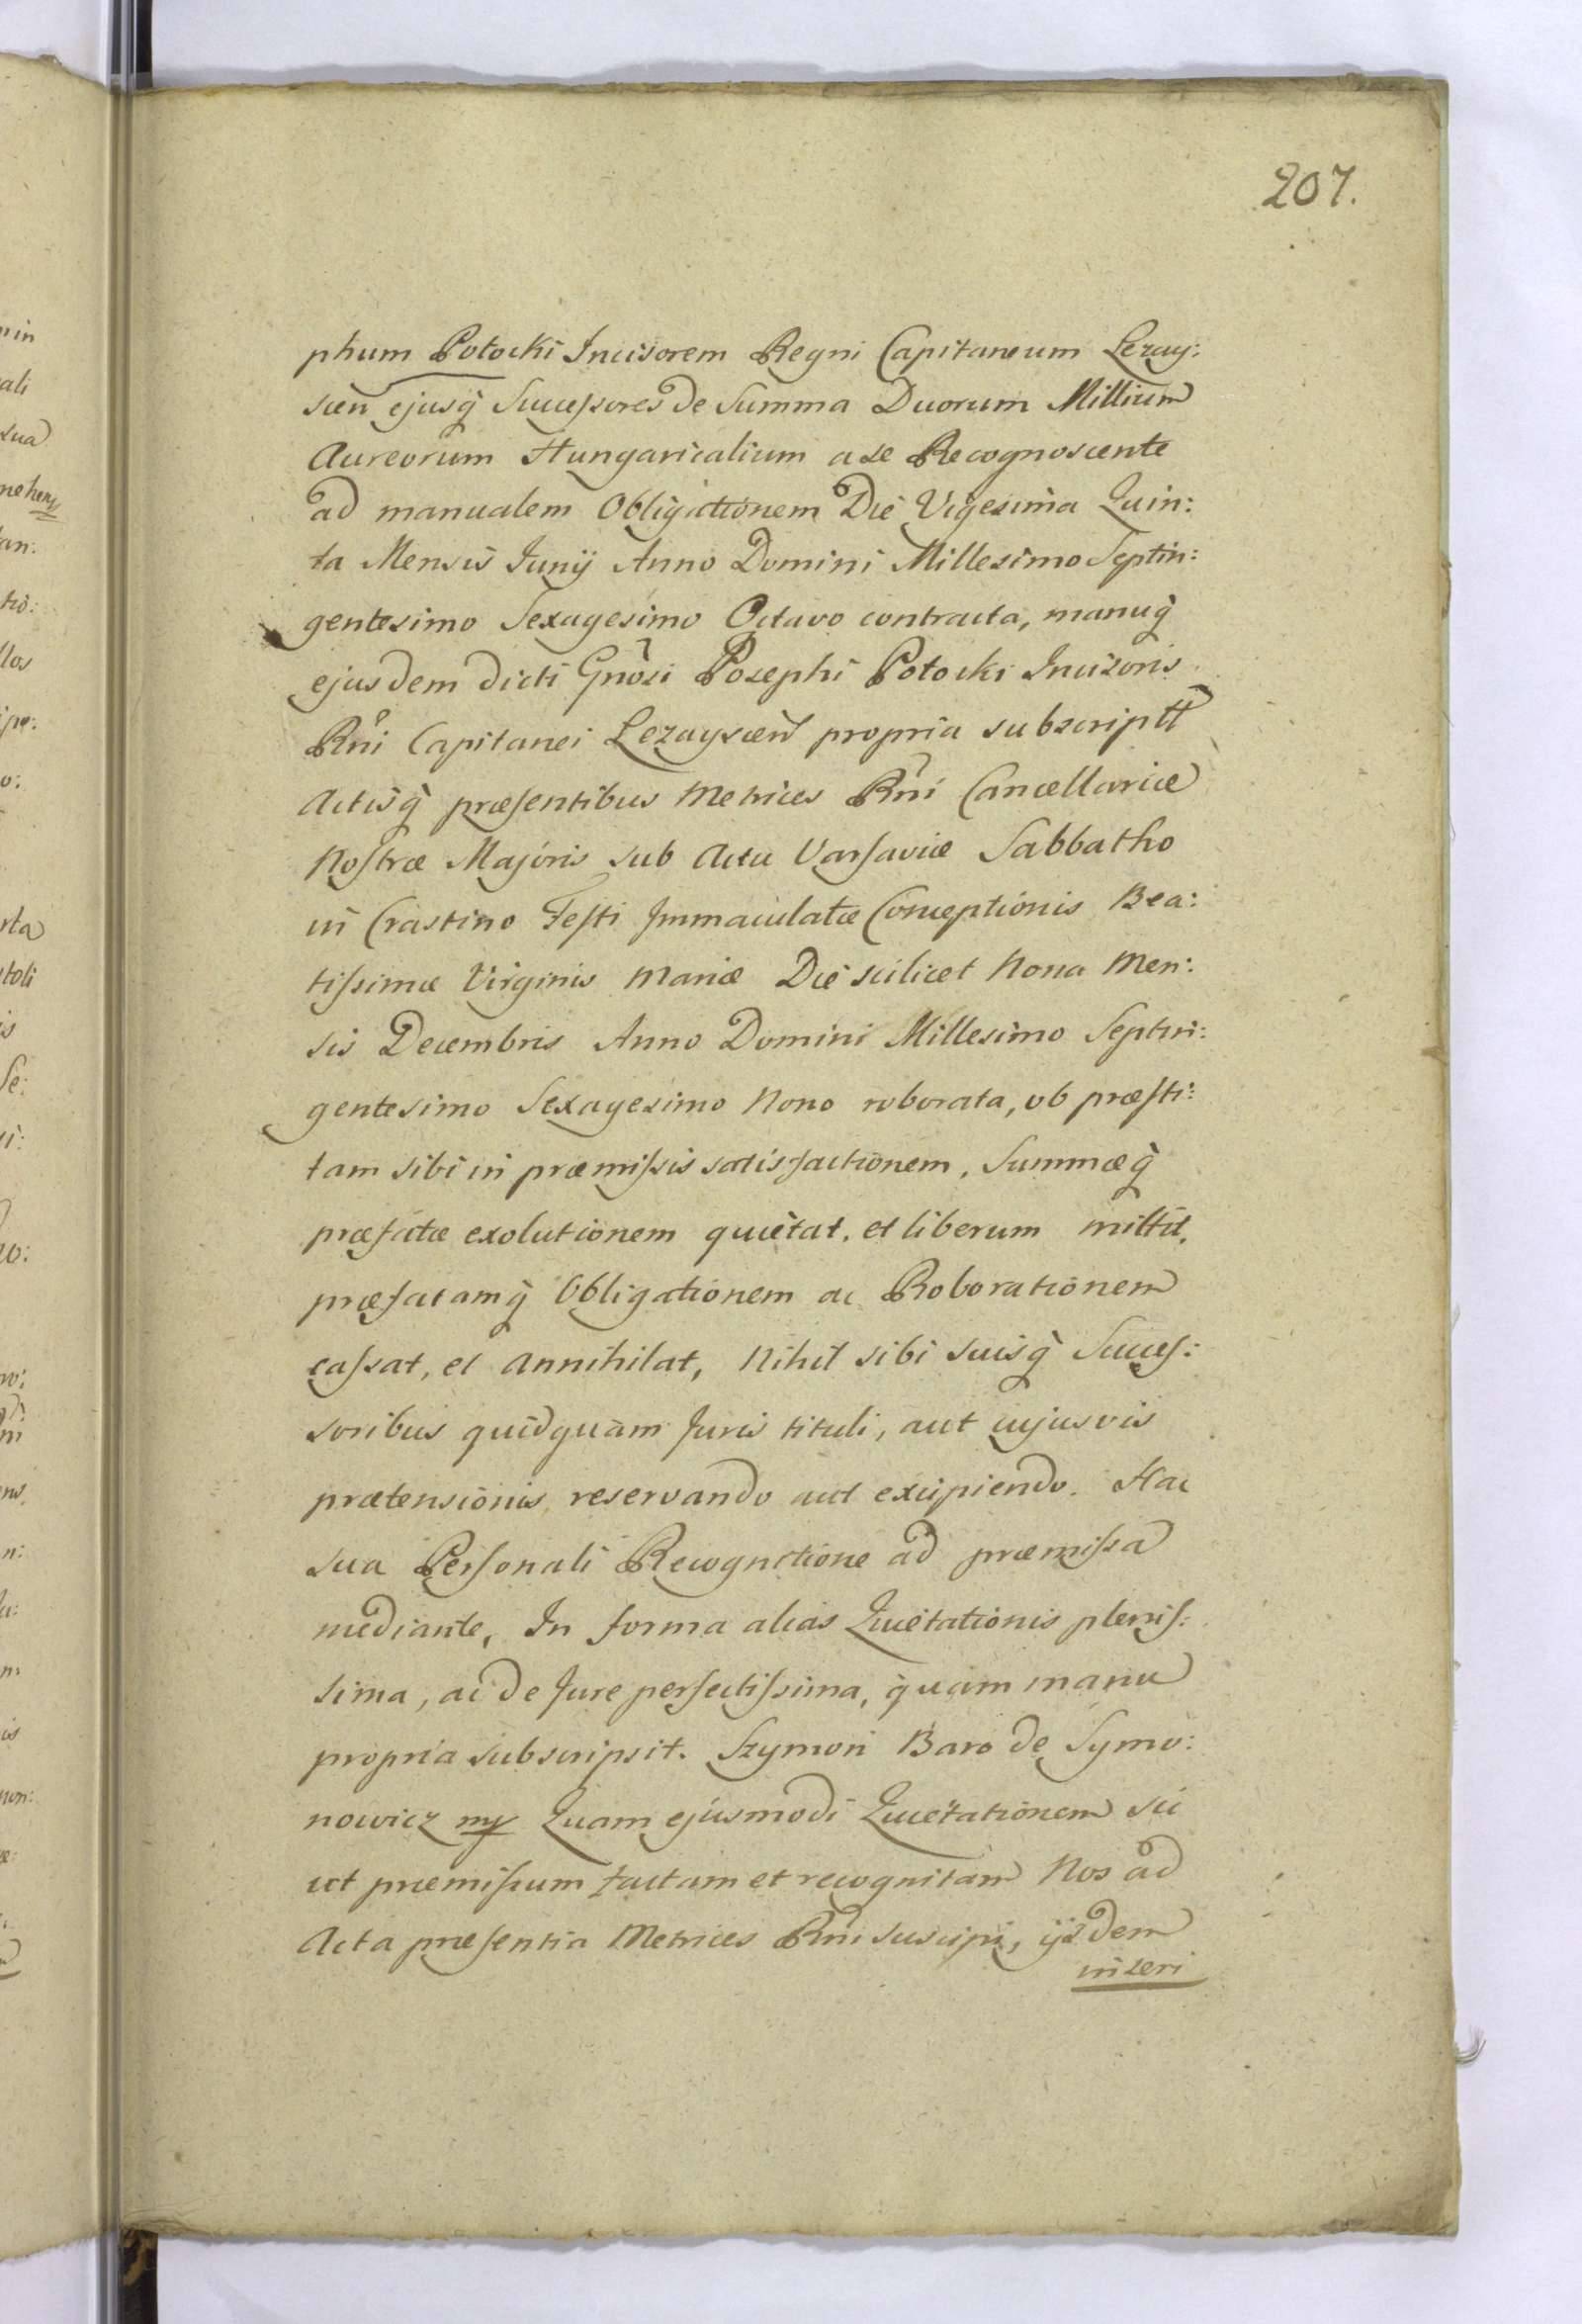 207.
phum Potocki Incisorem Regni Capitaneum Lezay:
scen̄ ejusq̀ Successores de Summa Duorum Millium
Aureorum Hungaricalium a se Recognoscente
ad manualem Obligationem Die Vigesima Quin:
ta Mensis Junij Anno Domini Millesimo Septin:
gentesimo Sexagesimo Octavo contracta, manuq̀
ejusdem dicti Gn̄osi Josephi Potocki Incisoris
Rn̄i Capitanei Lezayscen̄ propria subscriptt
Actisq̀ præsentibus Metrices Rn̄i Cancellariæ
Nostræ Majoris sub Actu Varsaviæ Sabbatho
in Crastino Festi Immaculatæ Conceptionis Bea:
tissimæ Virginis Mariæ Die scilicet Nona Men:
sis Decembris Anno Domini Millesimo Septin:
gentesimo Sexagesimo Nono roborata, ob præsti:
tam sibi in præmissis satisfactionem, Summæq̀
præfatæ exolutionem quietat, et liberum mittit,
præfatamq̀ Obligationem ac Roborationem
cassat, et annihilat, Nihil sibi suisq̀ Succes:
soribus quidquam Juris tituli, aut cujusvis
prætensionis reservando aut excipiendo. Hac
sua Personali Recognitione ad præmissa
mediante, In forma alias Quietationis plenis:
sima, ac de Jure perfectissima, quam manu
propria subscripsit. Szymon Baro de Symo:
nowicz mp Quam ejusmodi Quietationem sic
ut præmissum factam et recognitam Nos ad
Acta præsentia Metrices Rn̄i suscipi, ijsdem
inseri